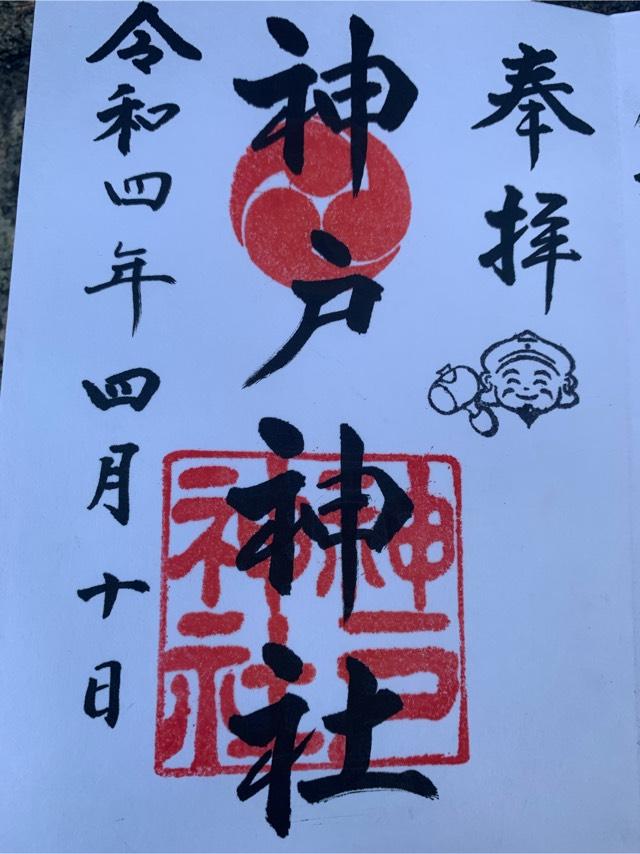 奉拝
神戸神社
神戸
神社
令和四年四月十日